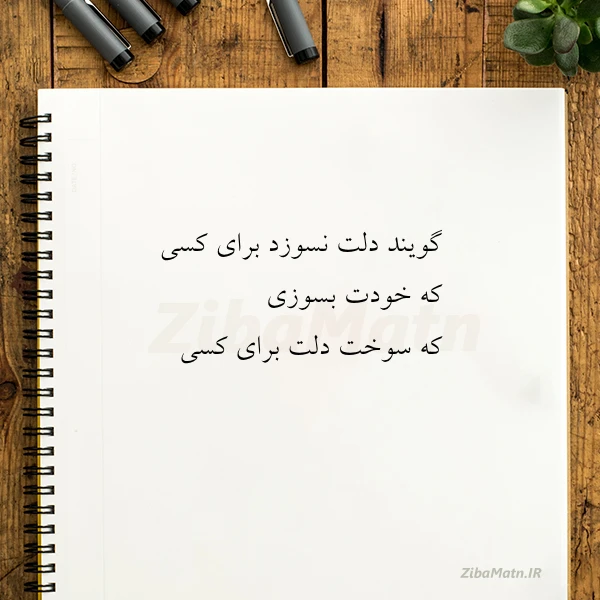 گویند دلت نسوزد برای کسی
که خودت بسوزی
که سوخت دلت برای کسی
ZibaMatn
ZibaMatn.IR